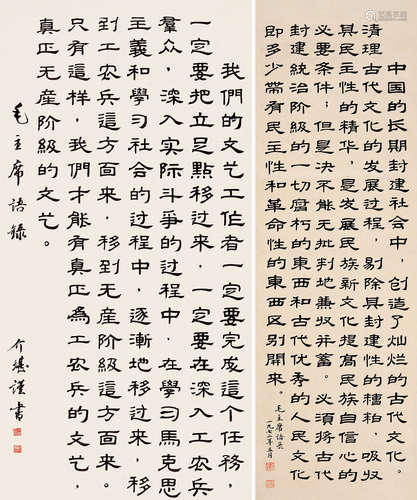 中国的长期封建社会中，创造了灿烂的古代文化。
清理古代文化的发展过程，剔除其封建性的糟粕，吸收
其民主性的精华，是发展民族新文化提高民族自信心的
必要条件；但是决不能无批判地兼收并蓄。必须将古代
封建统治阶级的一切腐朽的东西和古代优秀的人民文化
即多少带有民主性和革命性的东西区别开来。
毛主席语录
一九七二年五月
我們的文艺工作者一定要完成這个任務，
一定要把立足點移过来，一定要在深入工农兵
羣众，深入实际斗爭的过程中，在学习马克思
主義和学习社会的过程中，逐漸地移过来，移
到工农兵這方面来，移到无産阶級這方面来。
只有這样，我們才能有真正為工农兵的文艺，
真正无産阶級的文艺。
毛主席語錄
介堪谨書